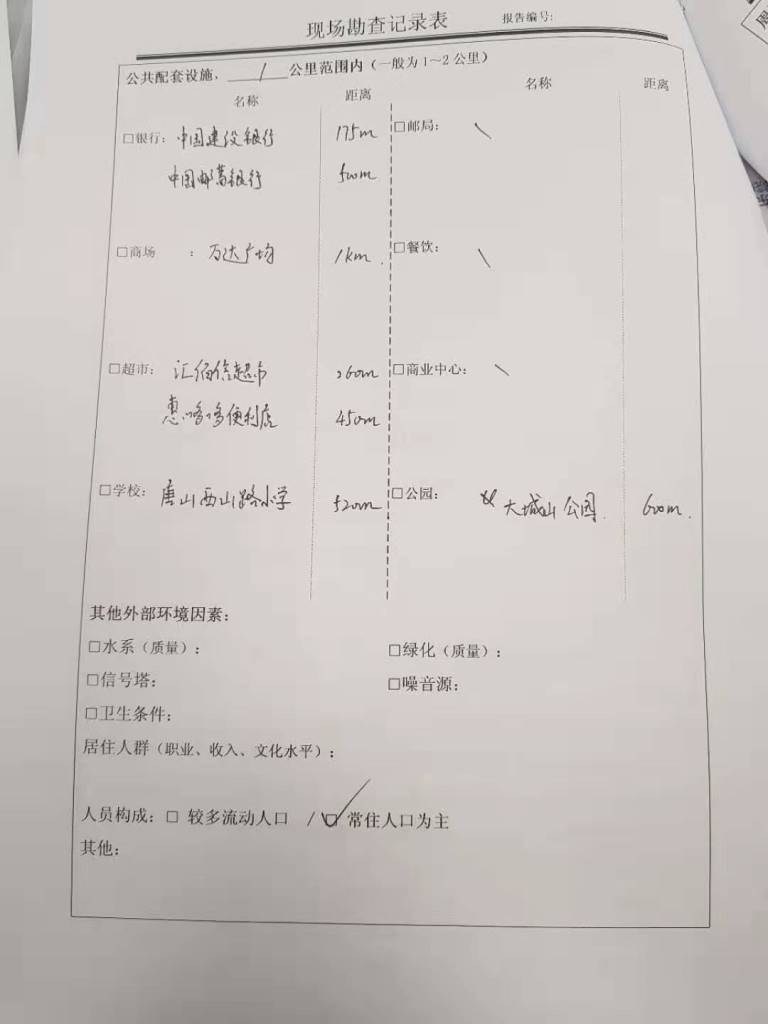 现场勘查记录表 报告编号:
公共配套设施、 / 公里范围内（一般为1～2公里）
名称 距离 名称 距离
□银行: 中国建设银行 175m □邮局: \
中国邮蓄银行 500m
□商场 : 万达广场 1km . □餐饮: \
□超市: 汇佰信超市 260m □商业中心: \
惠哆哆便利店 450m
□学校: 唐山西山路小学 520m □公园: 大城山公园. 600m.
其他外部环境因素:
□水系（质量）: □绿化（质量）:
□信号塔: □噪音源:
□卫生条件:
居住人群（职业、收入、文化水平）:
人员构成: □ 较多流动人口 / ☑ 常住人口为主
其他: